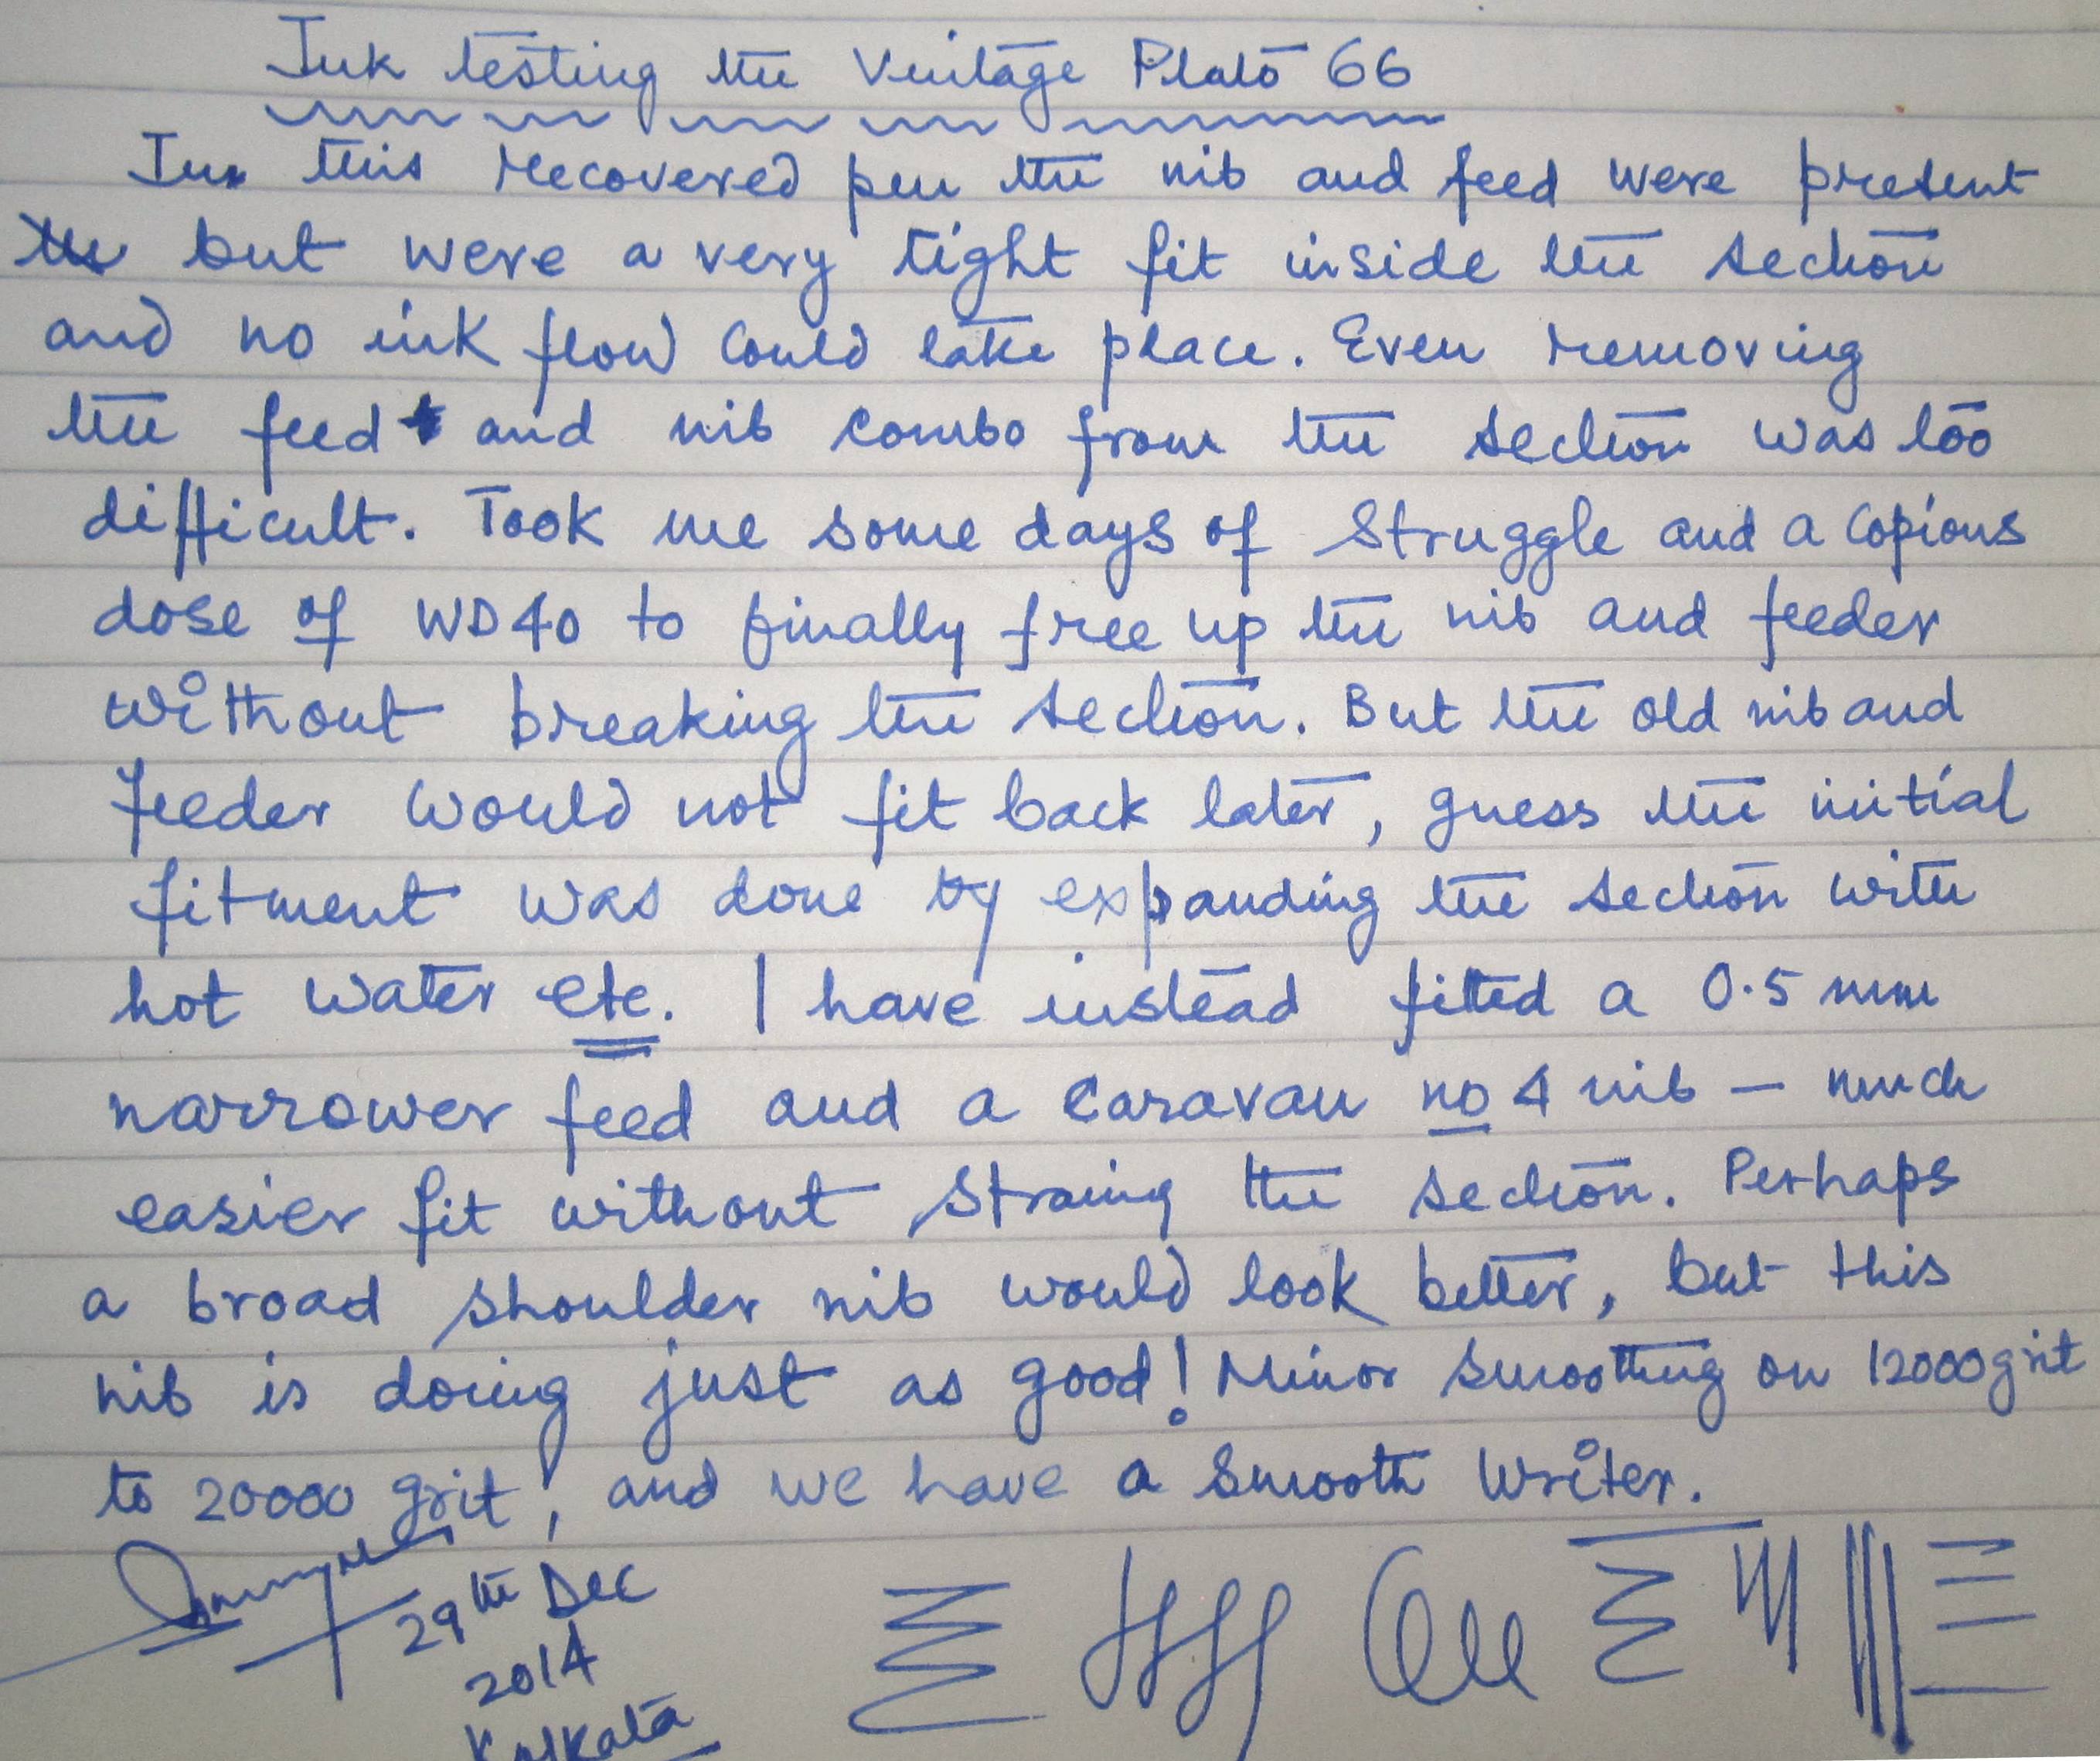 Ink testing the Vintage Plato 66
In this recovered pen the nib and feed were present
but were a very tight fit inside the section
and no ink flow could take place. Even removing
the feed and nib combo from the section was too
difficult. Took me some days of struggle and a copious
dose of WD40 to finally free up the nib and feeder
without breaking the section. But the old nib and
feeder would not fit back later, guess the initial
fitment was done by expanding the section with
hot water etc. I have instead fitted a 0.5 mm
narrower feed and a Caravan no 4 nib — much
easier fit without straing the section. Perhaps
a broad shoulder nib would look better, but this
nib is doing just as good! Minor smoothing on 12000 grit
to 20000 grit, and we have a smooth writer.
29th Dec
2014
Kolkata